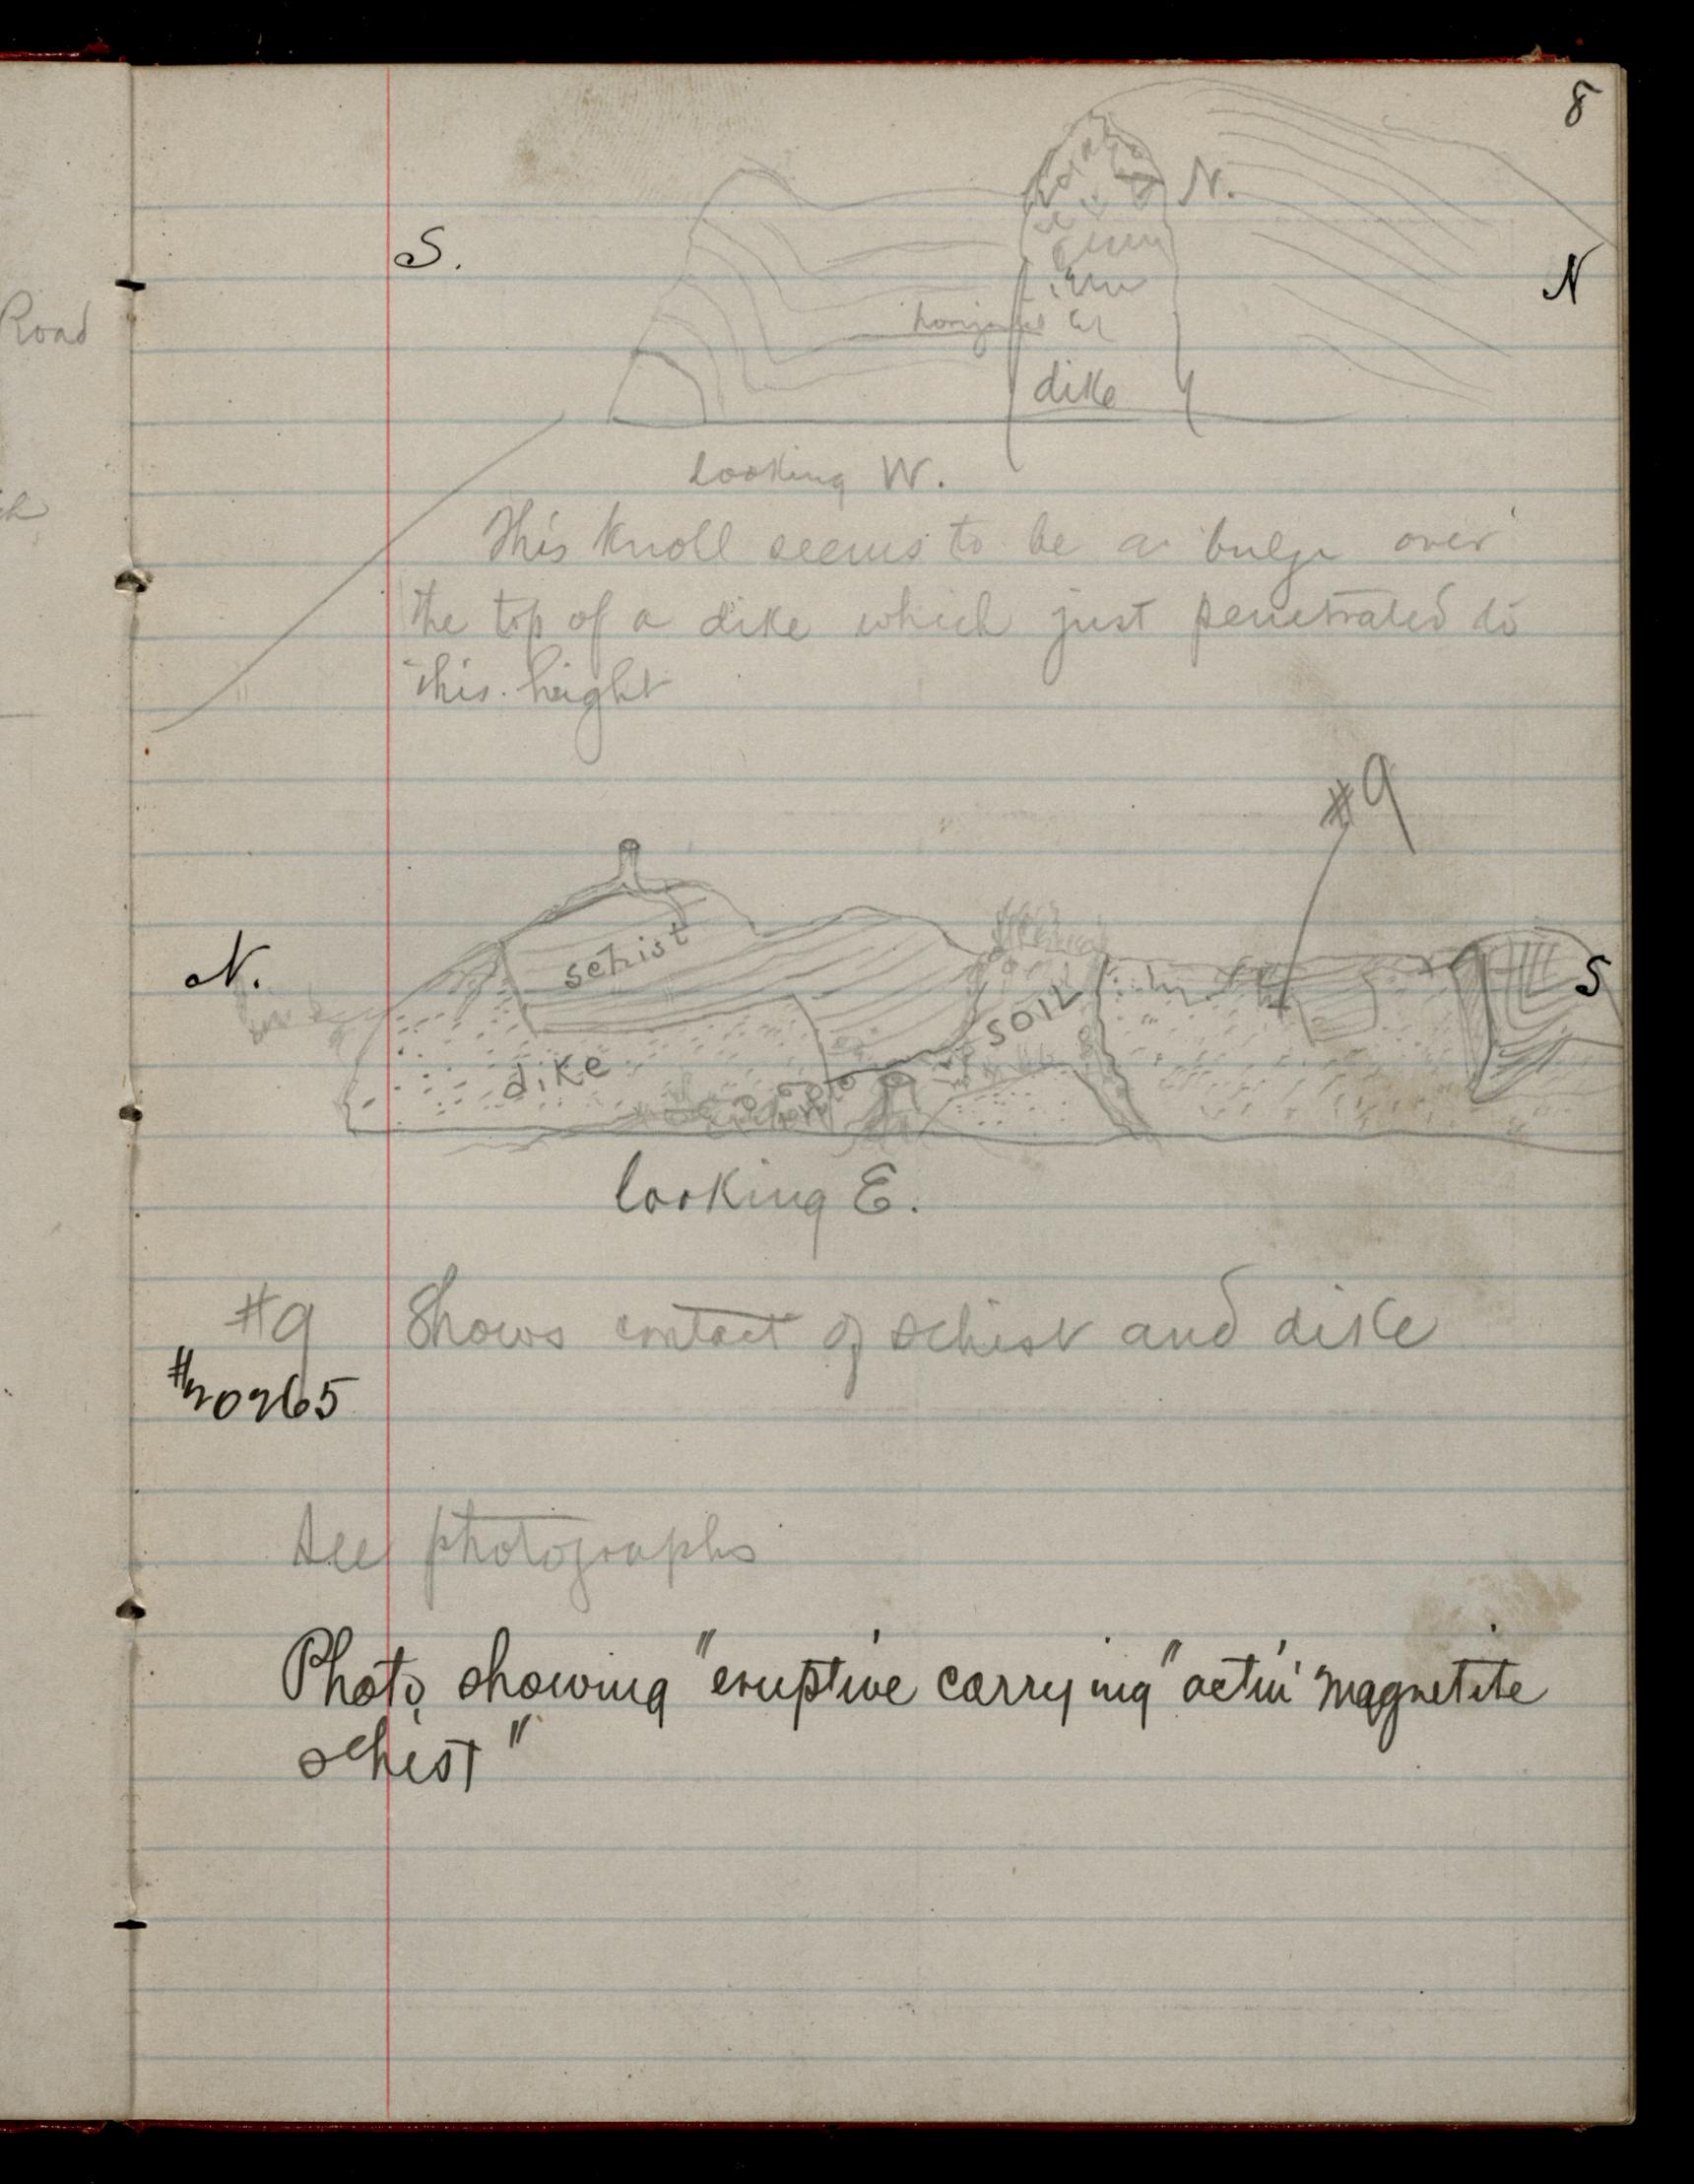 8
S.
N.
N
Road
dike
looking W.
This knoll seems to be a bulge over
the top of a dike which just penetrated to
this height
#9
schist
N.
S
soil
dike
looking E.
#9 Shows contact of schist and dike
#20265
See photographs
Photo, showing "eruptive carrying" actin' magnetite
schist"